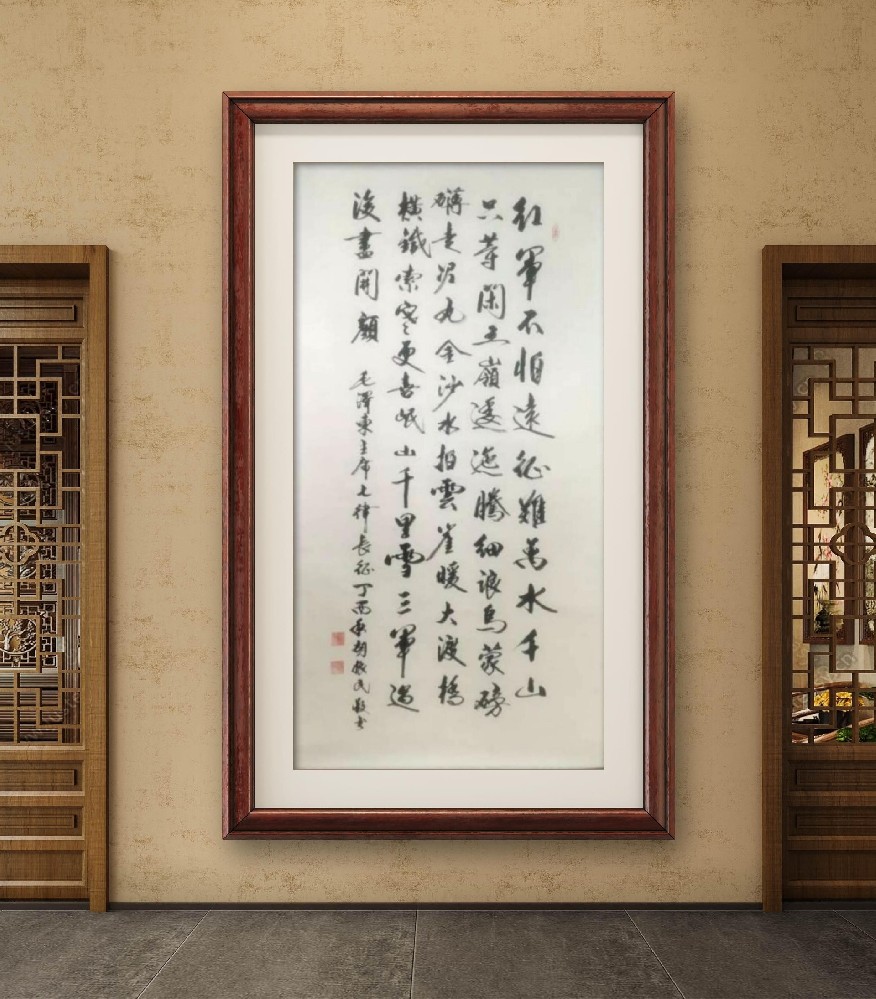 紅軍不怕遠征難萬水千山
只等閑五嶺逶迤騰細浪烏蒙磅
礴走泥丸金沙水拍雲崖暖大渡橋
橫鐵索寒更喜岷山千里雪三軍過
後盡開顏 毛澤東主席七律長征丁酉